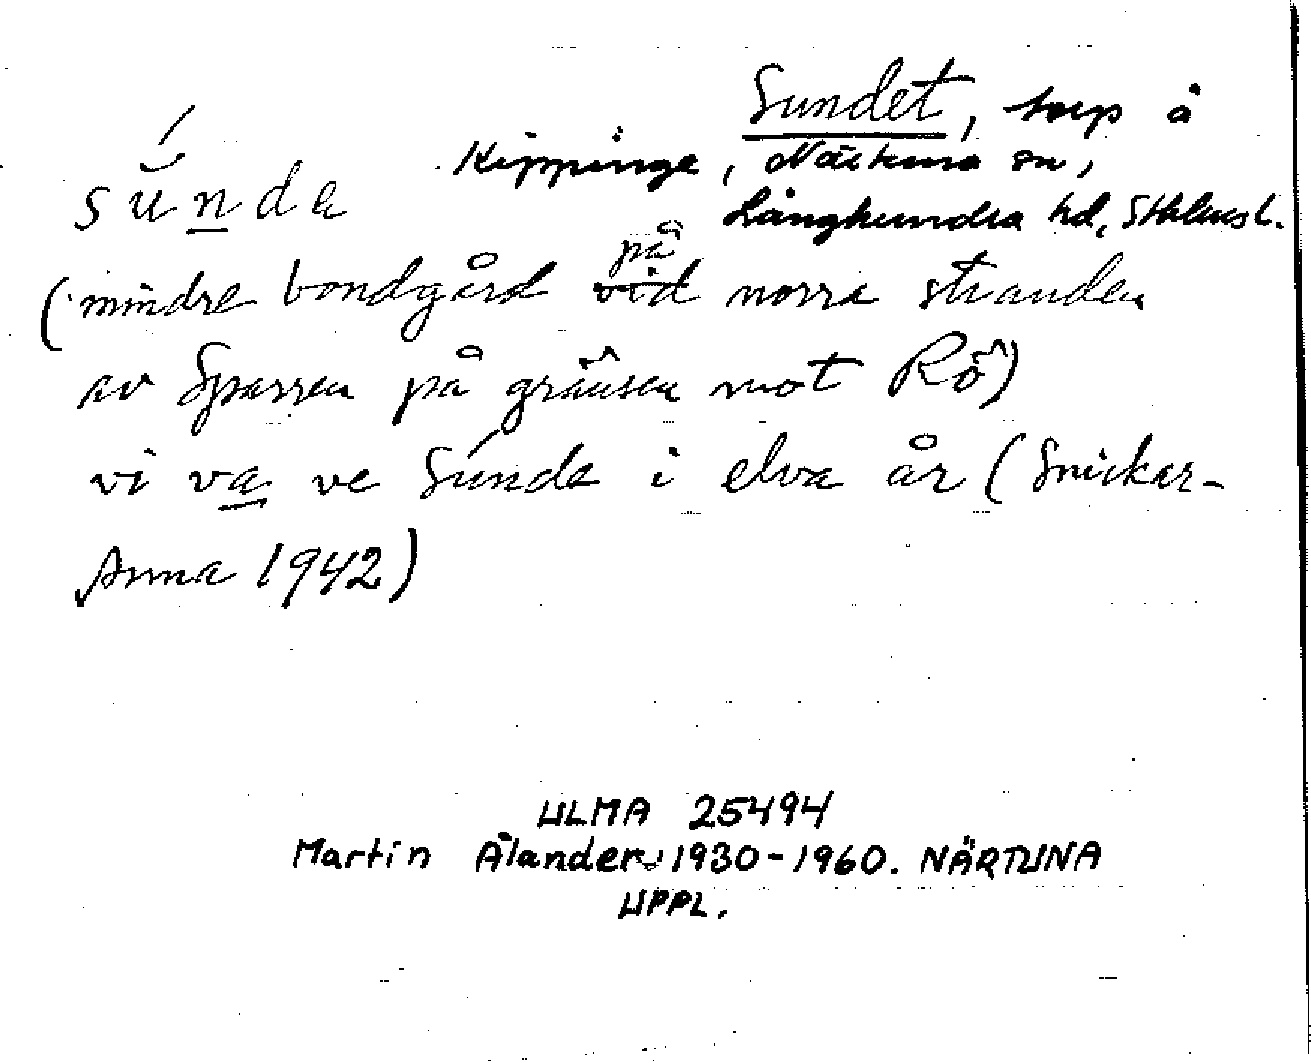 Sundet, torp å
Kippinge, Närtuna sn,
Långhundra hd, Sthlmsl.
súnda
på
(mindre bondgård vid norra stranden
av Sparren på gränsen mot Rö)
vi va ve Súnda i elva år (Snickar-
Anna 1942)
ULMA 25494
Martin Ålander 1930-1960. NÄRTUNA
UPPL.